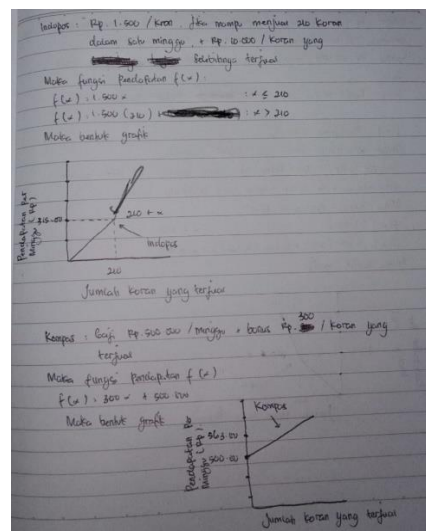 Indopos : Rp. 1.500 / koran, Jika mampu menjual 210 koran
dalam satu minggu, + Rp. 10.000 / koran yang
Selebihnya terjual
Maka fungsi Pendapatan f(x) :
f(x) : 1.500 x : x ≤ 210
f(x) : 1.500 (210) + : x > 210
Maka bentuk grafik
Pendapatan Per
Minggu (Rp)
315.00
210 + x
Indopos
210
Jumlah koran yang terjual
Kompas : Gaji Rp. 500.000 / minggu + bonus Rp. 300 / koran yang
terjual
Maka fungsi Pendapatan f(x)
f(x) : 300 x + 500.000
Maka bentuk grafik
Kompas
Pendapatan Per
Minggu (Rp)
563.00
500.00
Jumlah koran yang terjual